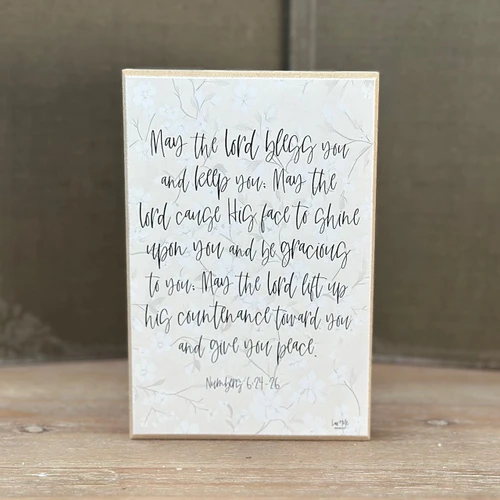 May the lord bless you
and keep you. May the
lord cause His face to shine
upon you and be gracious
to you. May the lord lift up
his countenance toward you
and give you peace.
Numbers 6:24-26